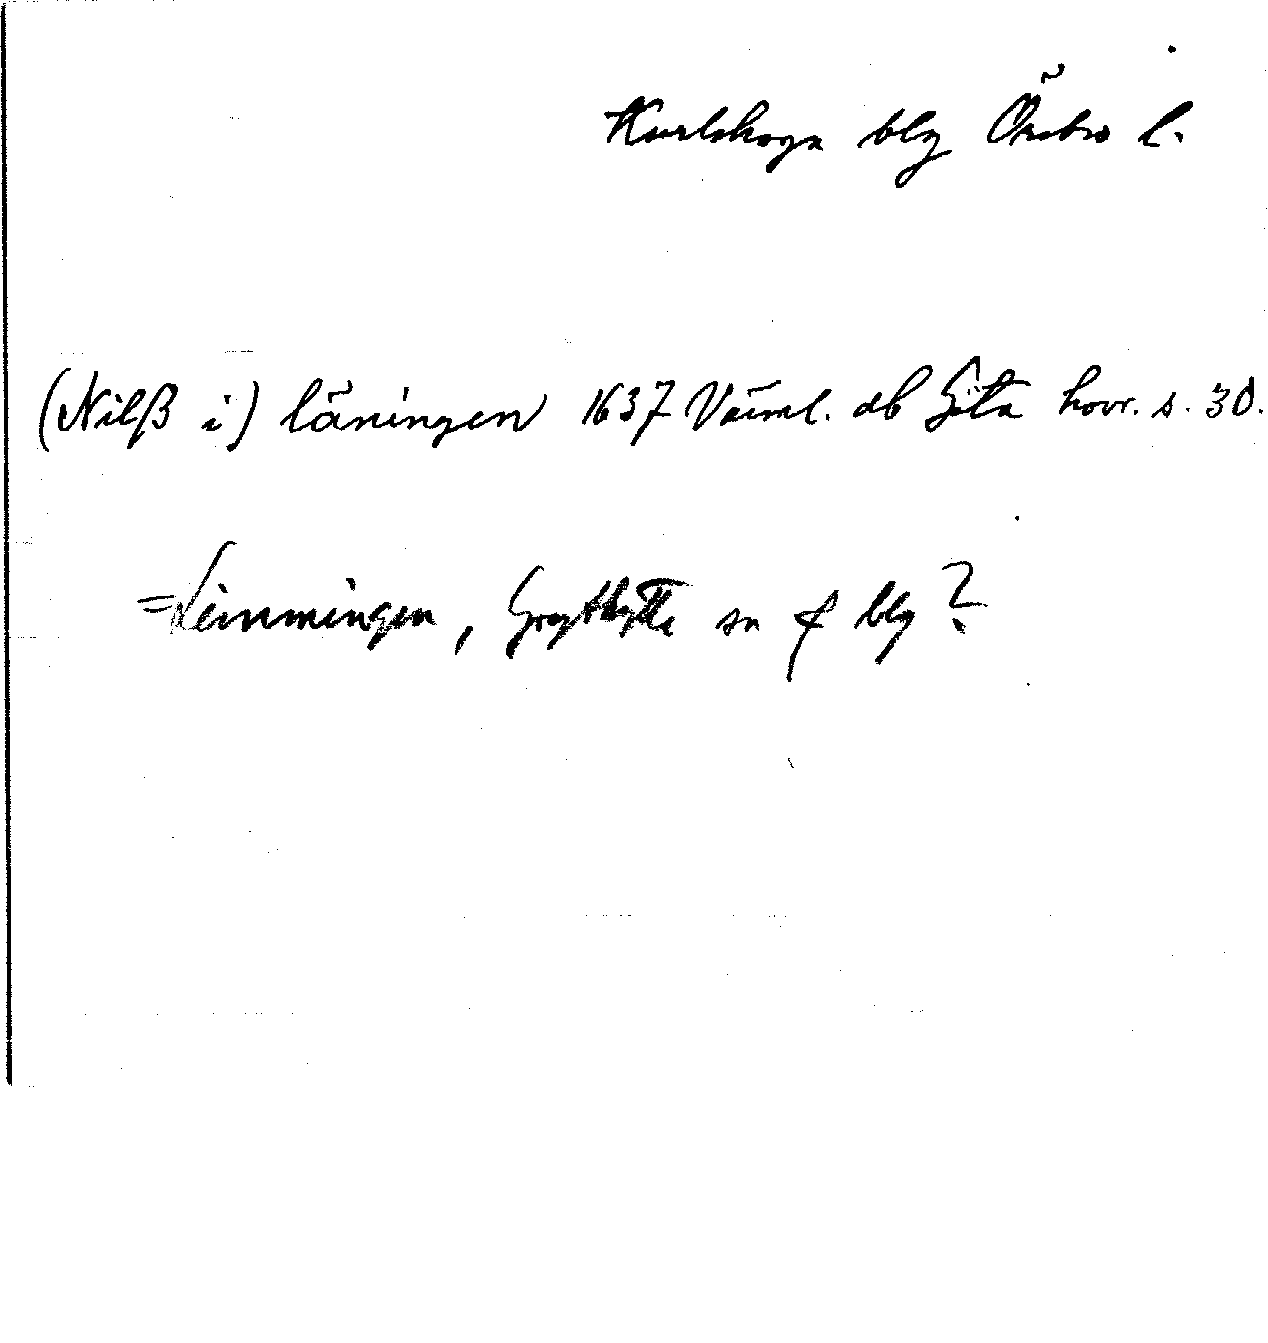 Karlskoga blg Örebro l.
(Nilß i) läningen 1637 Värml. db Göta hovr. s. 30.
=Lemmingen, Grythytte sn & blg?